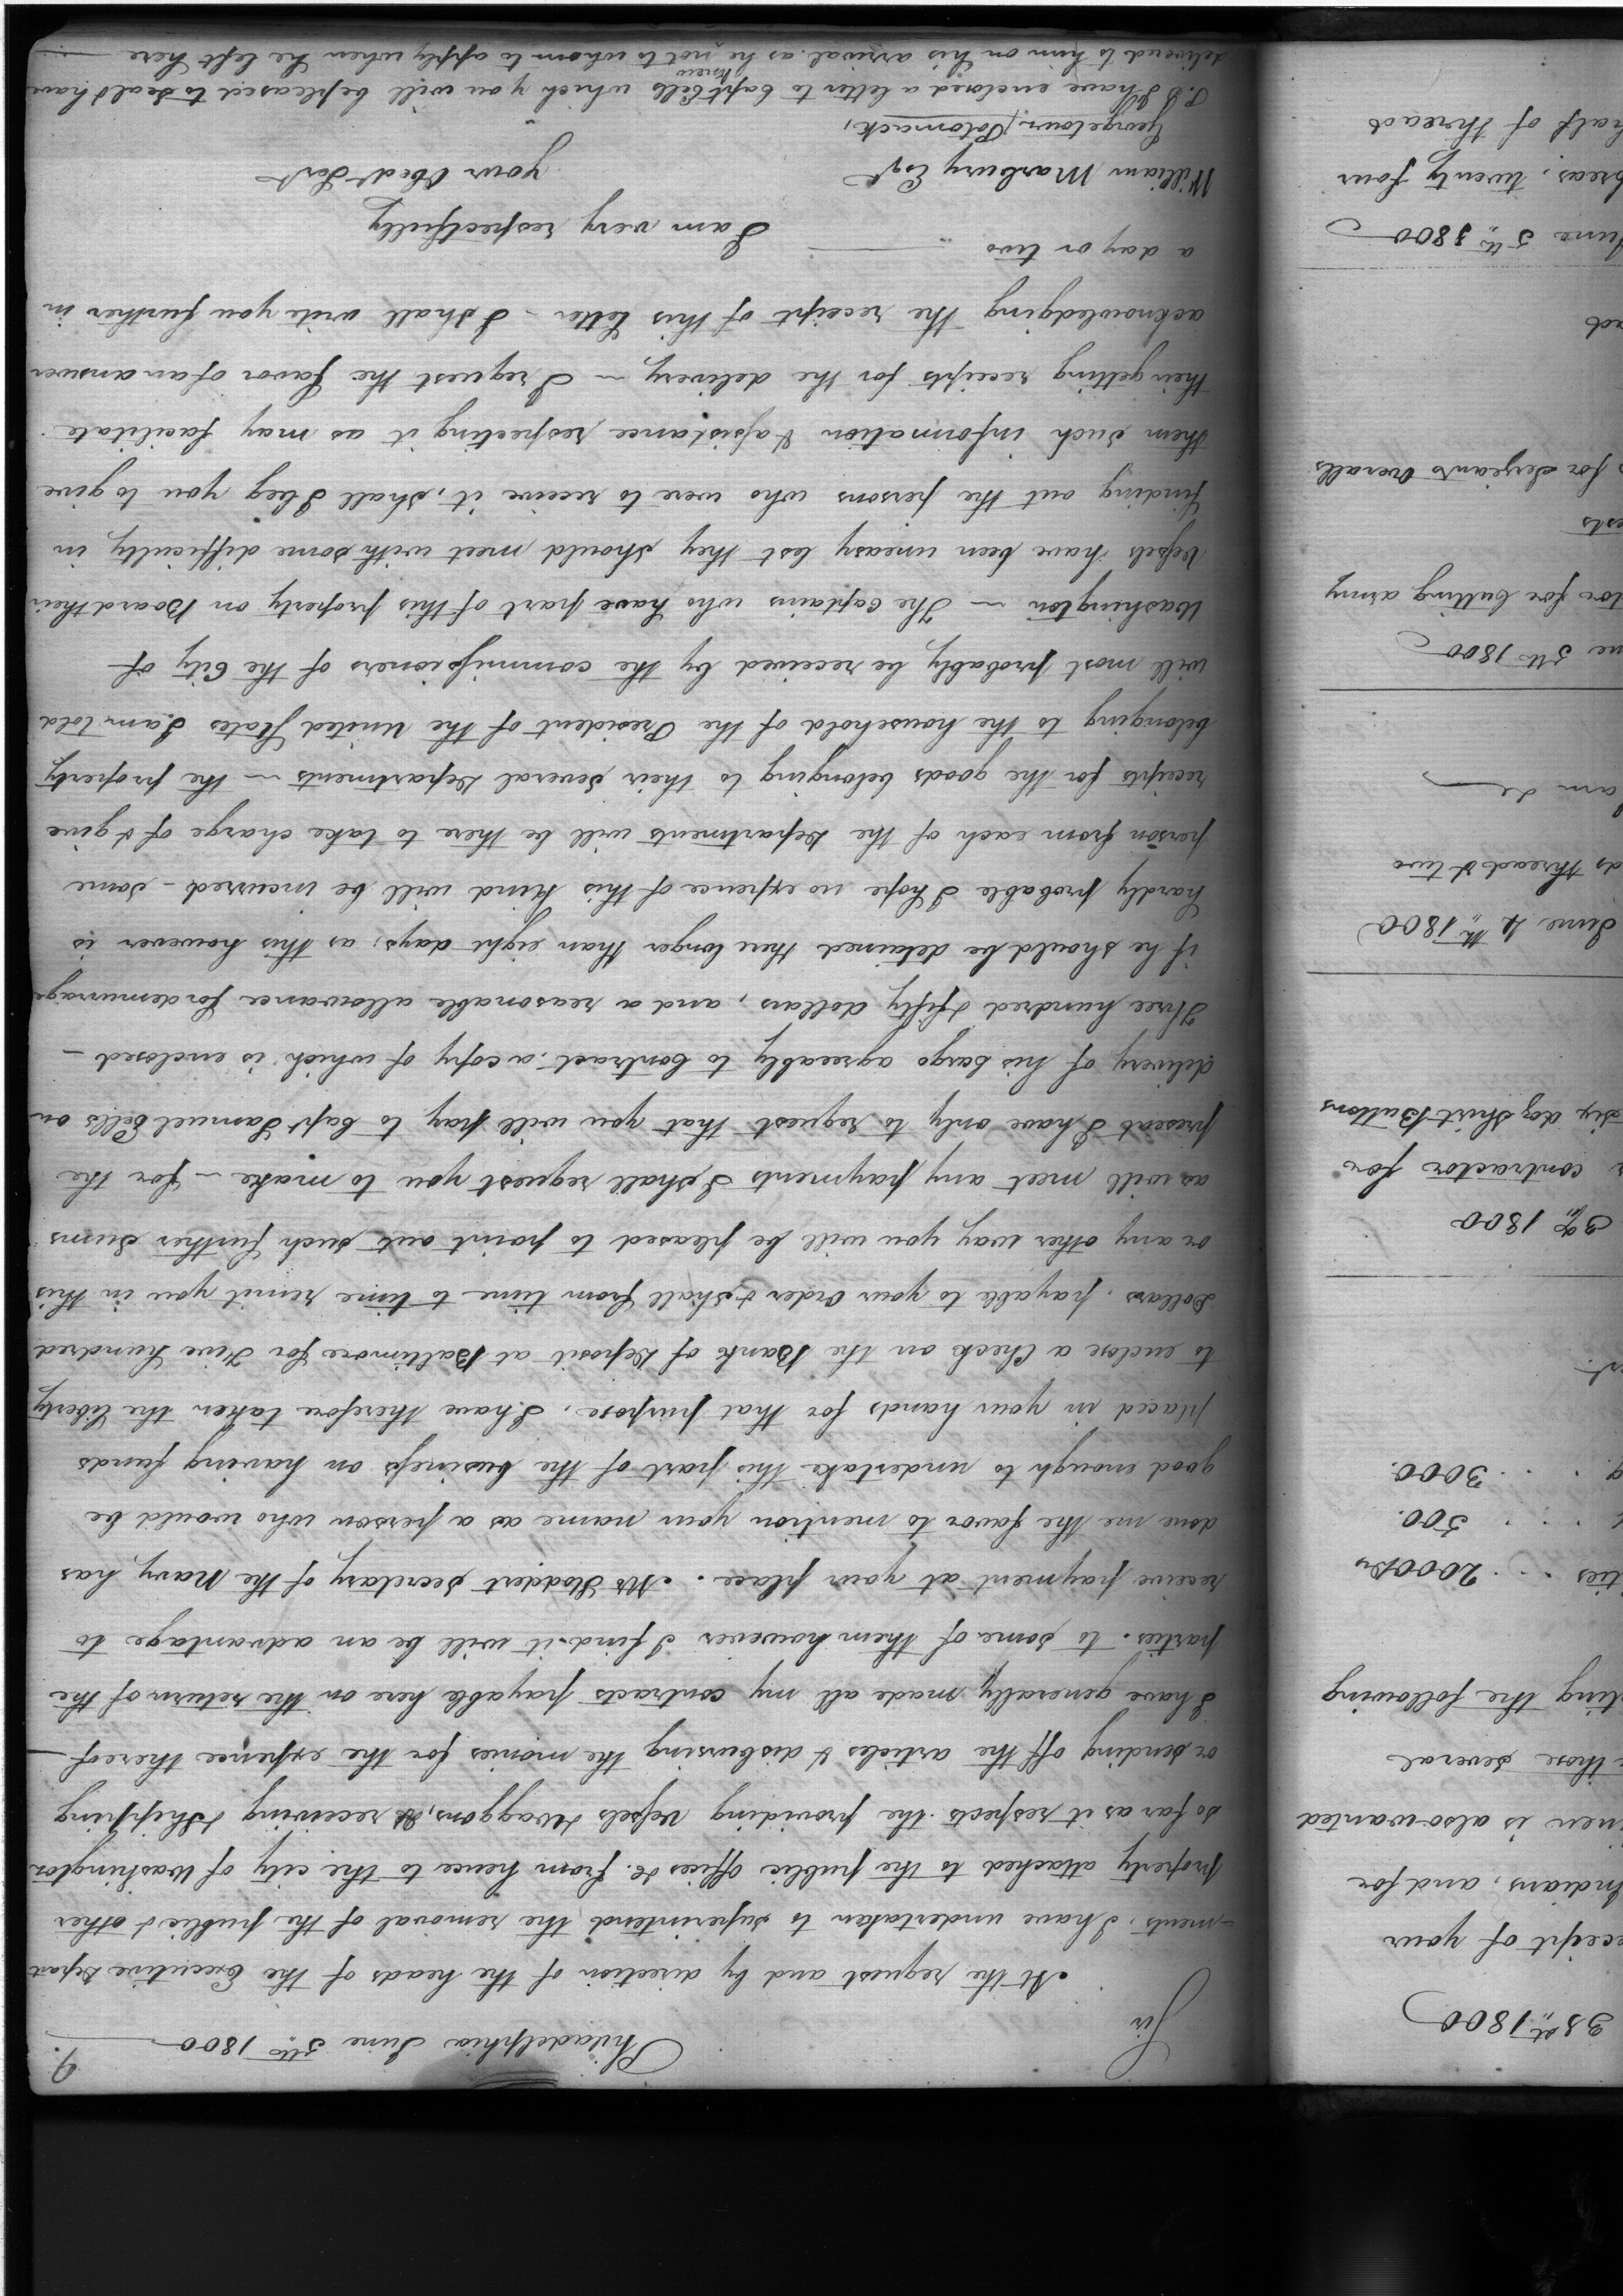 9.
Philadelphia June 5th 1800
Sir
At the request and by direction of the heads of the Executive Depart
-ments, I have undertaken to superintend the removal of the public & other
property attached to the public offices &c. from hence to the city of Washington
so far as it respects the providing Vessels Waggons, &c receiving & Shipping
or sending off the articles & disbursing the monies for the expence thereof—
I have generally made all my contracts payable here on the return of the
parties. to some of them however I find it will be an advantage to
receive payment at your place. Mr Stoddert Secretary of the Navy has
done me the favor to mention your name as a person who would be
good enough to undertake this part of the business on having funds
placed in your hands for that purpose, I have therefore taken the liberty
to enclose a Check on the Bank of Deposit at Baltimore for Five hundred
Dollars, payable to your Order & shall from time to time remit you in this
or any other way you will be pleased to point out such further Sums
as will meet any payments I shall request you to make - for the
present I have only to request that you will pay to Capt Samuel Eells on
delivery of his Cargo agreeably to Contract, a copy of which is enclosed -
Three hundred & fifty dollars, and a reasonable allowance for demurrage
if he should be detained there longer than eight days; as this however is
hardly probable I hope no expence of this kind will be incurred - some
person from each of the Departments will be there to take charge of & give
receipts for the goods belonging to their several Departments - the property
belonging to the household of the President of the United States I am told
will most probably be received by the commissioners of the City of
Washington - The Captains who have part of this property on Board their
Vessels have been uneasy lest they should meet with some difficulty in
finding out the persons who were to receive it, shall I beg you to give
them such information & assistance respecting it as may facilitate
their getting receipts for the delivery - I request the favor of an answer
acknowledging the receipt of this letter - I shall write you further in
a day or two
I am very respectfully
your Obedt Servt
William Marbury Esqr
Georgetown, Potomack,
P.S I have enclosed a letter to Capt Eells which you will be pleased to Seal & have
delivered to him on his arrival as he knew not to whom to apply when he left here
1800
ceipt of your
Indians, and for
is also wanted
those several
ting the following
2000
500.
3000.
1800
contractor for
Six doz Shirt Buttons
June 4th 1800
ds thread & two
5th 1800
tor for cutting army
ests
for Serjeants Overalls
June 5th 1800
twenty four
half of thread